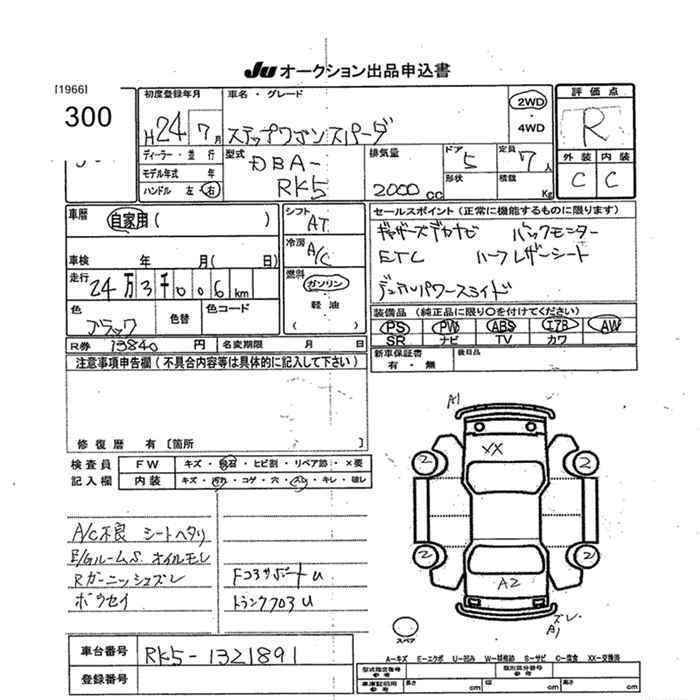 JU オークション出品申込書
[1966]
300
初度登録年月
H 24 7月
車名・グレード
ステップワゴンスパーダ
2WD
・
4WD
評価点
R
外装 内装
C C
ディーラー・並行
モデル年式 年
ハンドル 左 右
型式
DBA-
RK5
排気量
2000cc
ドア
5
定員
7人
形状
積載
Kg
車歴
自家用( )
車検 年 月( 日)
走行
24万3千006km
色
ブラック
色替
色コード
シフト
AT
冷房
A/C
燃料
ガソリン
・
軽油
( )
セールスポイント(正常に機能するものに限ります)
ギャザーズデカナビ バックモニター
ETC ハーフレザーシート
デュアルパワースライド
装備品(純正品に限り○を付けてください)
PS PW ABS エアB AW
SR ナビ TV カワ
R券 13840円 名変期限 月 日
新車保証書
有・無
後日品
注意事項申告欄(不具合内容等は具体的に記入して下さい)
修復歴 有[箇所 ]
検査員
記入欄
FW キズ・飛石・ヒビ割・リペア跡・×要
内装 キズ・汚れ・コゲ・穴・スレ・キレ・破レ
A/C不良 シートヘタリ
E/GルームS. オイルモレ
Rガーニッシュズレ
ボウセイ
Fコアサポートu
トランクフロアu
A1
XX
2
2
2
2
A2
ズレ
A1
スペア
車台番号 RK5-1321891
登録番号
A−キズ E−エクボ U−凹み W−補修跡 S−サビ C−腐食 XX−交換済
型式指定番号
参考
類別区分番号
参考
車庫証明用
参考
長さ cm 幅 cm 高さ cm